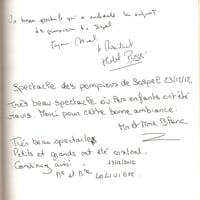 Un beau spectacle qui a enchanté les enfants
des pompiers de Sospel
Joyeux Noël
Le Président
Spectacle des pompiers de Sospel 23/12/12
Très beau spectacle où les enfants ont été
ravis. Merci pour cette bonne ambiance.
Mr et Mme Blanc
Très beau spectacle
Petits et grands ont été content.
Continuez ainsi 23/12/2012
Mr et Mme